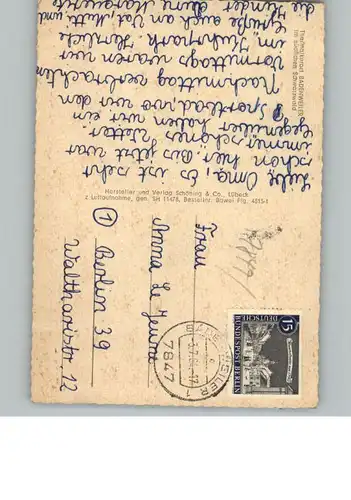 Thermalkurort BADENWEILER
im südlichen Schwarzwald
Liebe Oma, Es ist sehr
schön hier. Bis jetzt war
immer schönes Wetter.
Gegenüber haben wir ein
Sportbad, wo wir den
Nachmittag verbrachten
Vormittags waren wir
im Kurpark. Herzliche
Grüße auch an Vati, Mutti, und
die Kinder Deine Margarete
Hersteller und Verlag Schöning & Co., Lübeck
Luftaufnahme, gen. SH 11478, Bestellnr. Bawei Flg. 4215-1
BADENWEILER 1
7847
15
DEUTSCHE
BUNDESPOST BERLIN
Frau
Anna Le Jeune
1 Berlin 39
Waltharistr. 12